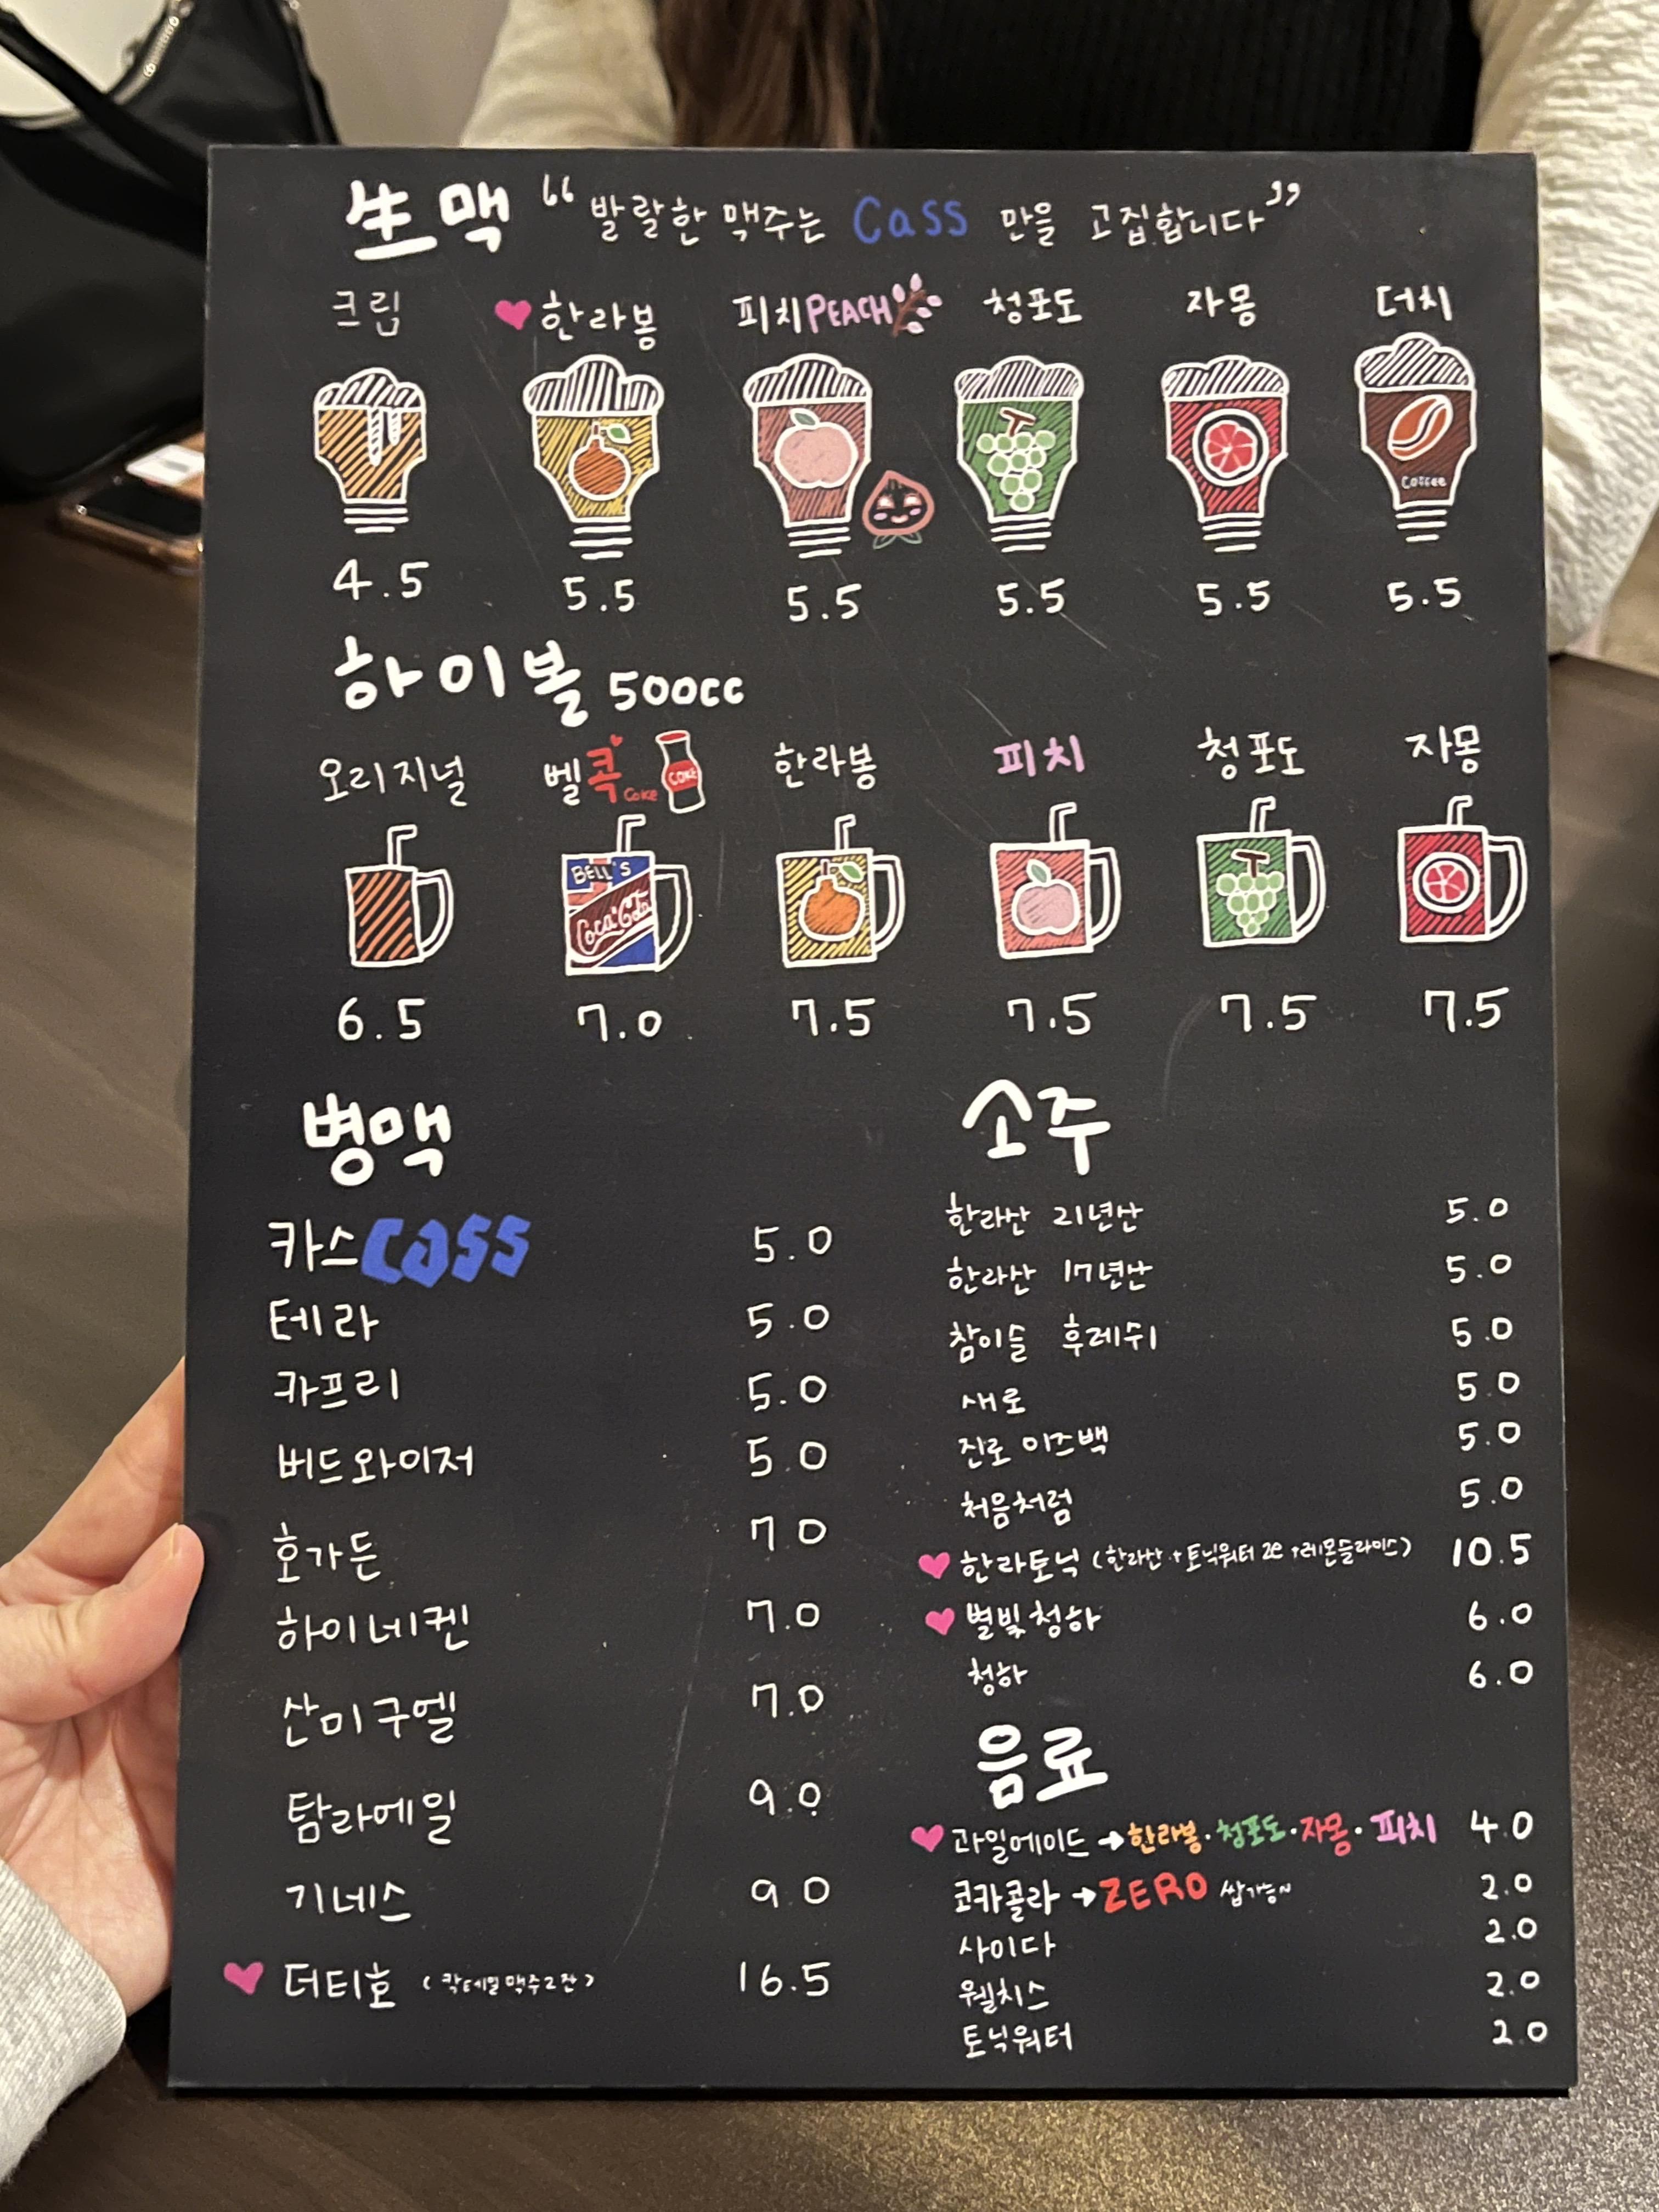 生맥 "발랄한 맥주는 Cass 만을 고집합니다"
크림 한라봉 피치PEACH 청포도 자몽 더치
Coffee
4.5 5.5 5.5 5.5 5.5 5.5
하이볼 500cc
오리지널 벨콕 Coke COKE 한라봉 피치 청포도 자몽
BELL'S
Coca'Cola
6.5 7.0 7.5 7.5 7.5 7.5
병맥
카스 Cass 5.0
테라 5.0
카프리 5.0
버드와이저 5.0
호가든 7 0
하이네켄 7.0
산미구엘 7.0
탐라에일 9.0
기네스 9 0
더티호 (칵테일맥주2잔) 16.5
소주
한라산 21년산 5.0
한라산 17년산 5.0
참이슬 후레쉬 5.0
새로 5.0
진로이즈백 5.0
처음처럼 5.0
한라토닉 (한라산+토닉워터 2e+레몬슬라이스) 10.5
별빛청하 6.0
청하 6.0
음료
과일에이드→한라봉·청포도·자몽·피치 4.0
코카콜라→ZERO 쌉가능~ 2.0
사이다 2.0
웰치스 2.0
토닉워터 2.0